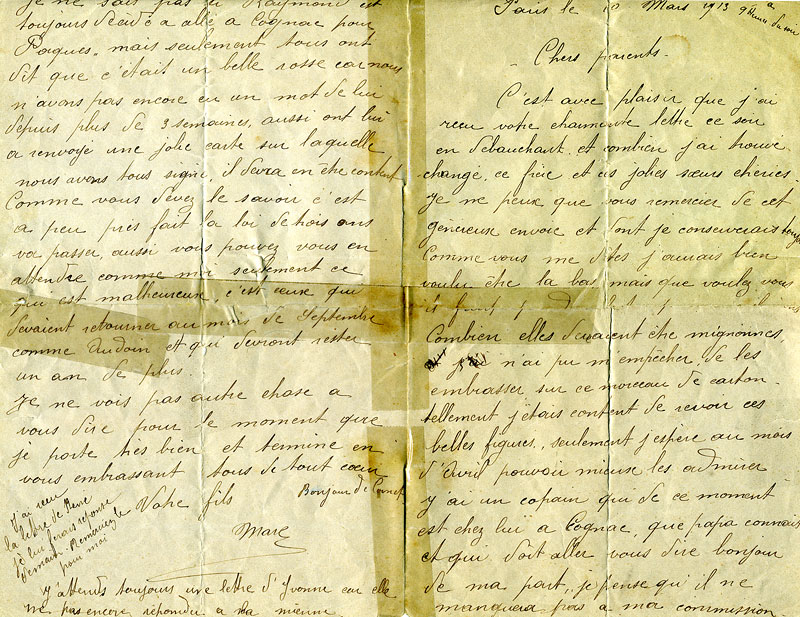 Paris le 10 Mars 1913 9 heures du soir
Chers parents
C'est avec plaisir que j'ai
recu votre charmante lettre ce soir
en débauchant et combien j'ai trouvé
changé, ce frère et ces jolies sœurs chéries.
Je ne peux que vous remercier de cet
généreuse envoie et dont je conserverais
Comme vous me dites j'aurais bien
voulu être la bas, mais que voulez vous
il faut
Combien elles devaient être mignonnes,
j'ai n'ai pu m'empêcher de les
embrasser sur ce morceau de carton
tellement j'étais content de revoir ces
belles figures, seulement j'espère au mois
d'Avril pouvoir mieux les admirer
J'ai un copain qui de ce moment
est chez lui a Cognac, que papa connait
et qui doit aller vous dire bonjour
de ma part, je pense qu'il ne
manquera pas a ma commission
Je ne sais pas si Raymond est
toujours décidé a allé a Cognac pour
Pâques, mais seulement tous ont
dit que c'était un belle rosse car nous
n'avons pas encore eu un mot de lui
depuis plus de 3 semaines, aussi ont lui
a renvoyé une jolie carte sur laquelle
nous avons tous signé, il devra en être content
Comme vous devez le savoir c'est
a peu près fait la loi de trois ans
va passer, aussi vous pouvez vous en
attendre comme moi seulement ce
qui est malheureux, c'est ceux qui
devaient retourner au mois de Septembre
comme Audoin et qui devront rester
un an de plus.
Je ne vois pas autre chose a
vous dire pour le moment que
je porte très bien et termine en
vous embrassant tous de tout cœur
Votre fils
Bonjour de
Marc
J'ai recu
la lettre de
je lui ferais réponse
demain. Remerciez le
pour moi
J'attends toujours une lettre d'Yvonne car elle
ne pas encore répondu a la mienne